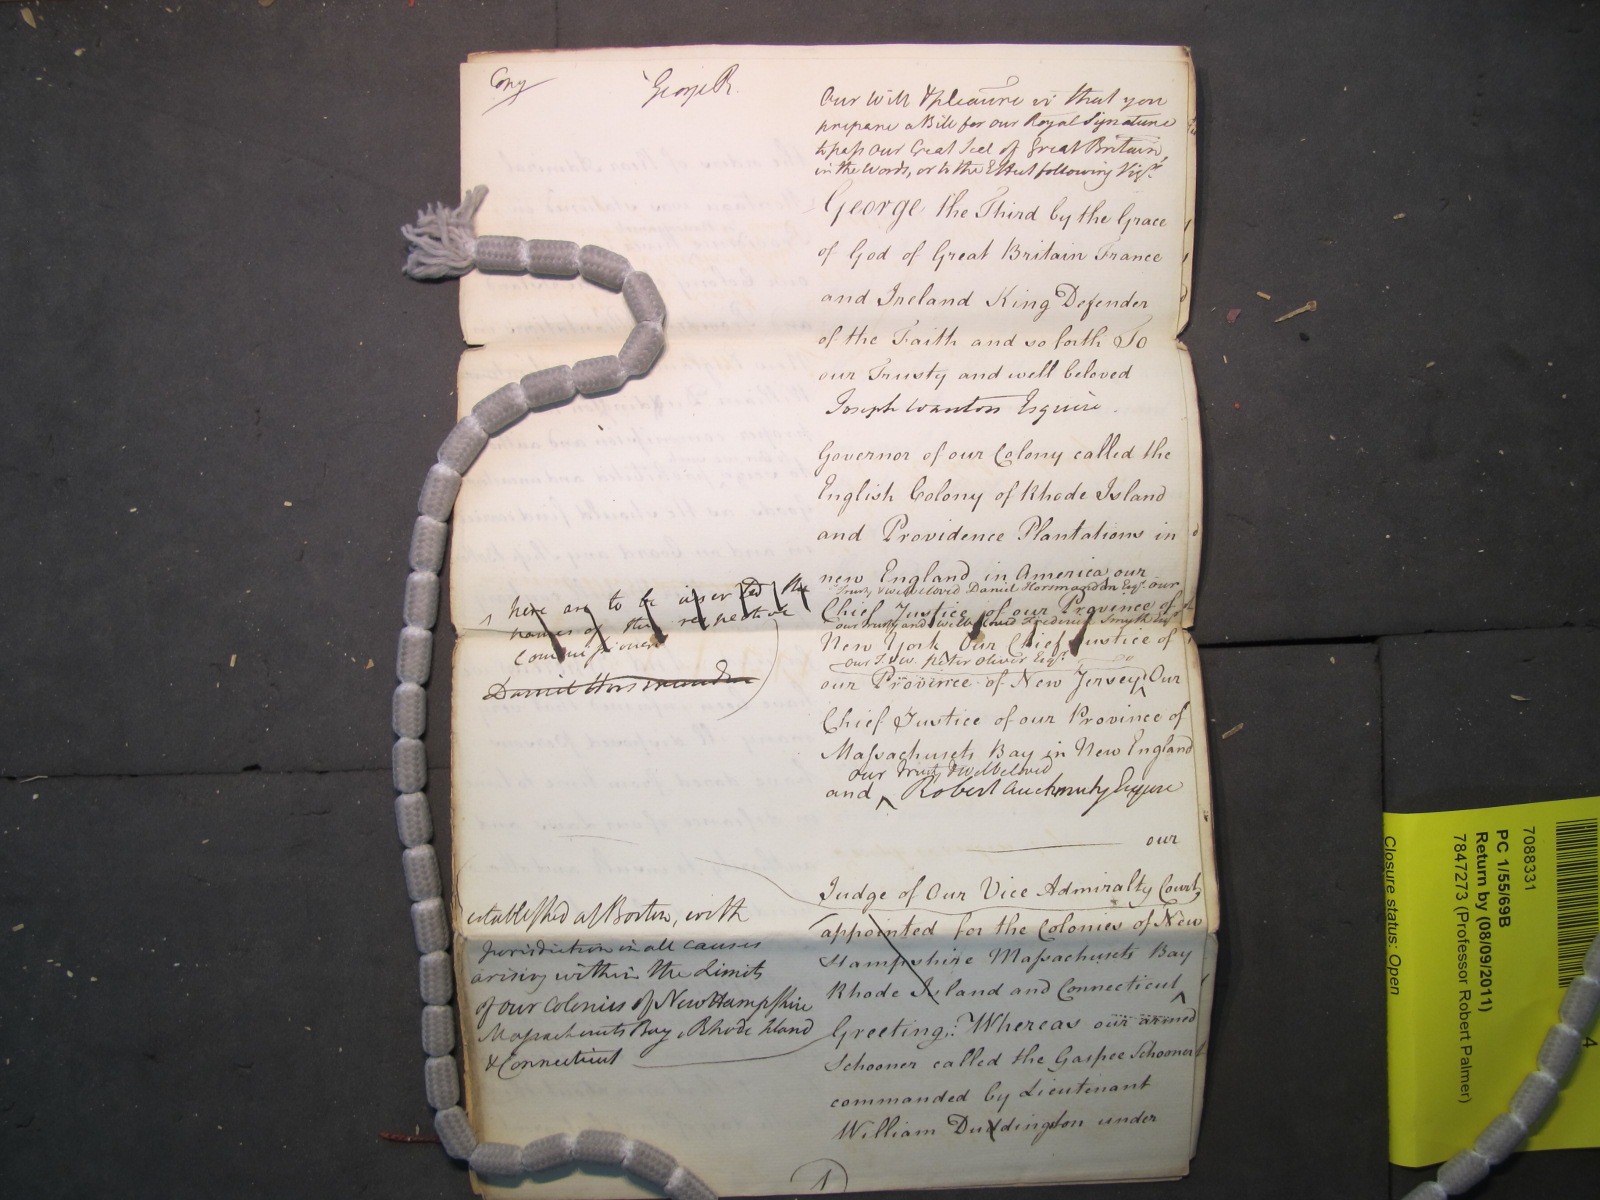 Copy
George R.
Our Will & pleasure is that you
prepare a Bill for our Royal Signature
to pass our Great Seal of Great Britain,
in the Words, or to the Effect following Vizt.
George the Third by the Grace
of God of Great Britain France
and Ireland King Defender
of the Faith and so forth To
our Trusty and well beloved
Joseph Wanton Esquire.
Governor of our Colony called the
English Colony of Rhode Island
and Providence Plantations in
new England in America our
Trusty & wellbeloved Daniel Horsmanden Esqr. our
Chief Justice of our Province of
our trusty and wellbeloved Frederick Smyth Esqr
New York Our Chief Justice of
our T. & W. Peter Oliver Esqr.
our Province of New Jersey Our
Chief Justice of our Province of
Massachusets Bay in New England
our trusty & Wellbeloved
and Robert Auchmuty Esquire
our
Judge of Our Vice Admiralty Court,
appointed for the Colonies of New
Hampshire Massachusets Bay
Rhode Island and Connecticut
Greeting: Whereas our armed
Schooner called the Gaspee Schooner
commanded by Lieutenant
William Duddington under
(1)
here are to be inserted the
names of the respective
Commissioners
Daniel Horsmanden
established at Boston, with
Jurisdiction in all causes
arising within the Limits
of our Colonies of New Hampshire
Massachusets Bay, Rhode Island
& Connecticut
7088331
PC 1/55/69B
Return by (08/09/2011)
7847273 (Professor Robert Palmer)
Closure status: Open
4